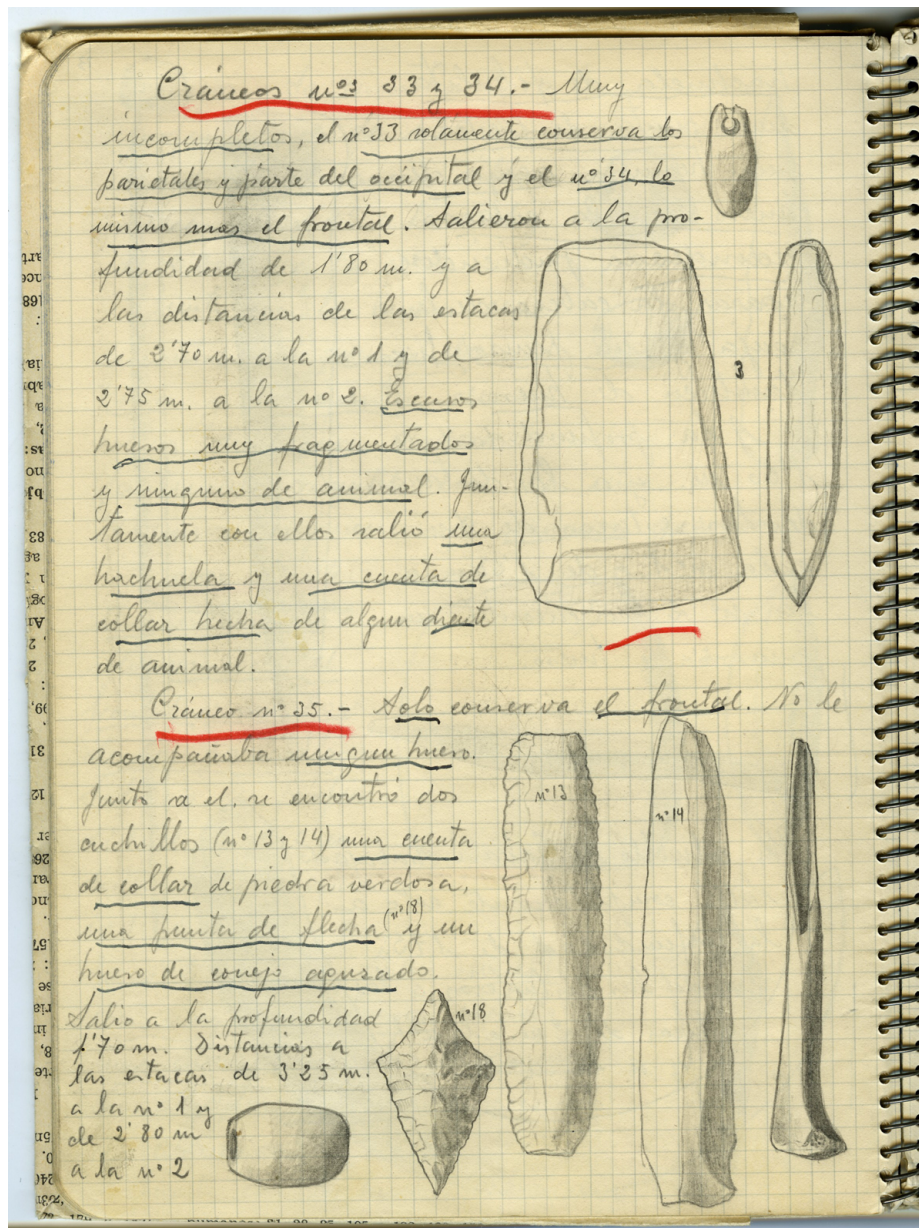 Cráneos nos 33 y 34.- Muy
incompletos, el nº 33 solamente conserva los
parietales y parte del occipital y el nº 34, lo
mismo mas el frontal. Salieron a la pro-
fundidad de 1'80 m. y a
las distancias de las estacas
de 2'70 m. a la nº 1 y de
2'75 m. a la nº 2. Escasos
huesos muy fragmentados
y ninguno de animal. Jun-
tamente con ellos salió una
hachuela y una cuenta de
collar hecha de algun diente
de animal.
3
Cráneo nº 35.- Solo conserva el frontal. No le
acompañaba ningun hueso.
Junto a el se encontró dos
cuchillos (nº 13 y 14) una cuenta
de collar de piedra verdosa,
una punta de flecha (nº 18) y un
hueso de conejo aguzado.
Salio a la profundidad
1'70 m. Distancias a
las estacas de 3'25 m.
a la nº 1 y
de 2'80 m
a la nº 2
nº 13
nº 14
nº 18